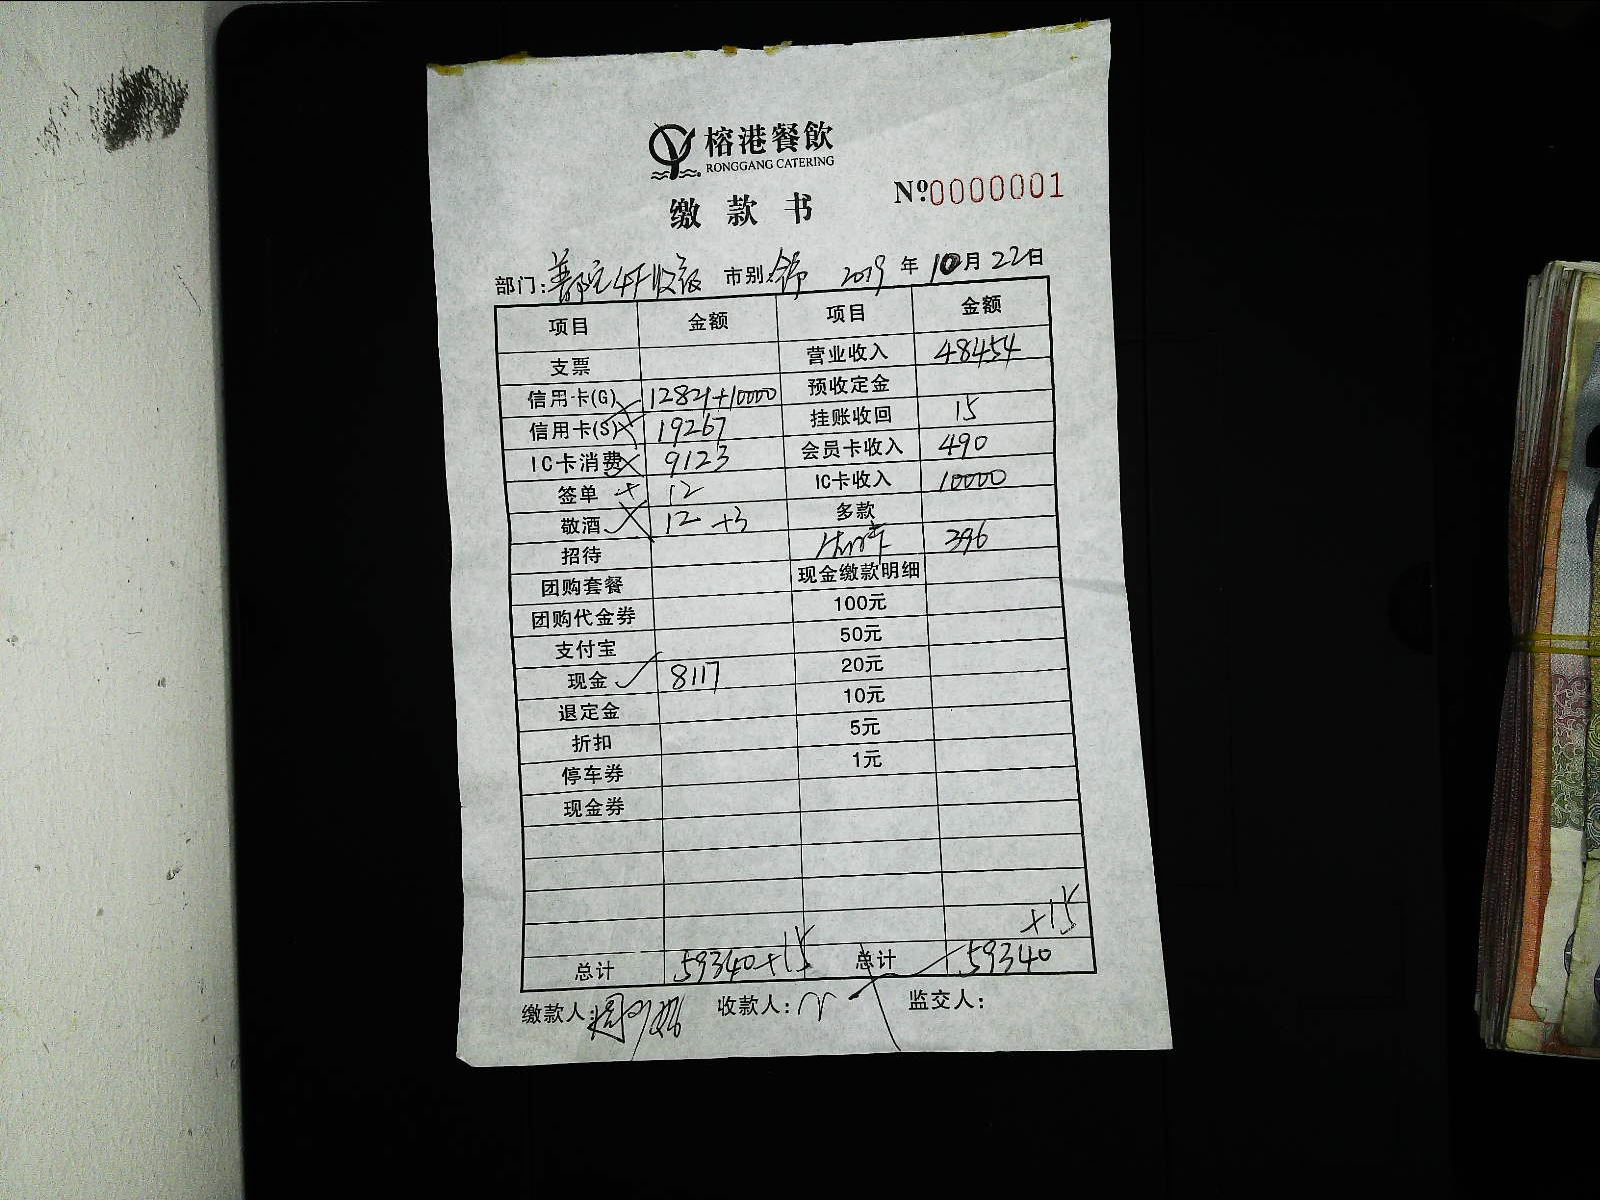 榕港餐飲
RONGGANG CATERING
缴款书
Nº0000001
部门: 4F收 市别: 2019年10月22日
项目 金额 项目 金额
支票 营业收入 48454
信用卡(G) 12821+10000 预收定金
信用卡(S) 19267 挂账收回 15
IC卡消费 9123 会员卡收入 490
签单 12 IC卡收入 10000
敬酒 12 +3 多款
招待 396
团购套餐 现金缴款明细
团购代金券 100元
支付宝 50元
现金 8117 20元
退定金 10元
折扣 5元
停车券 1元
现金券
+15
总计 59340+15 总计 59340
缴款人: 收款人: 监交人: